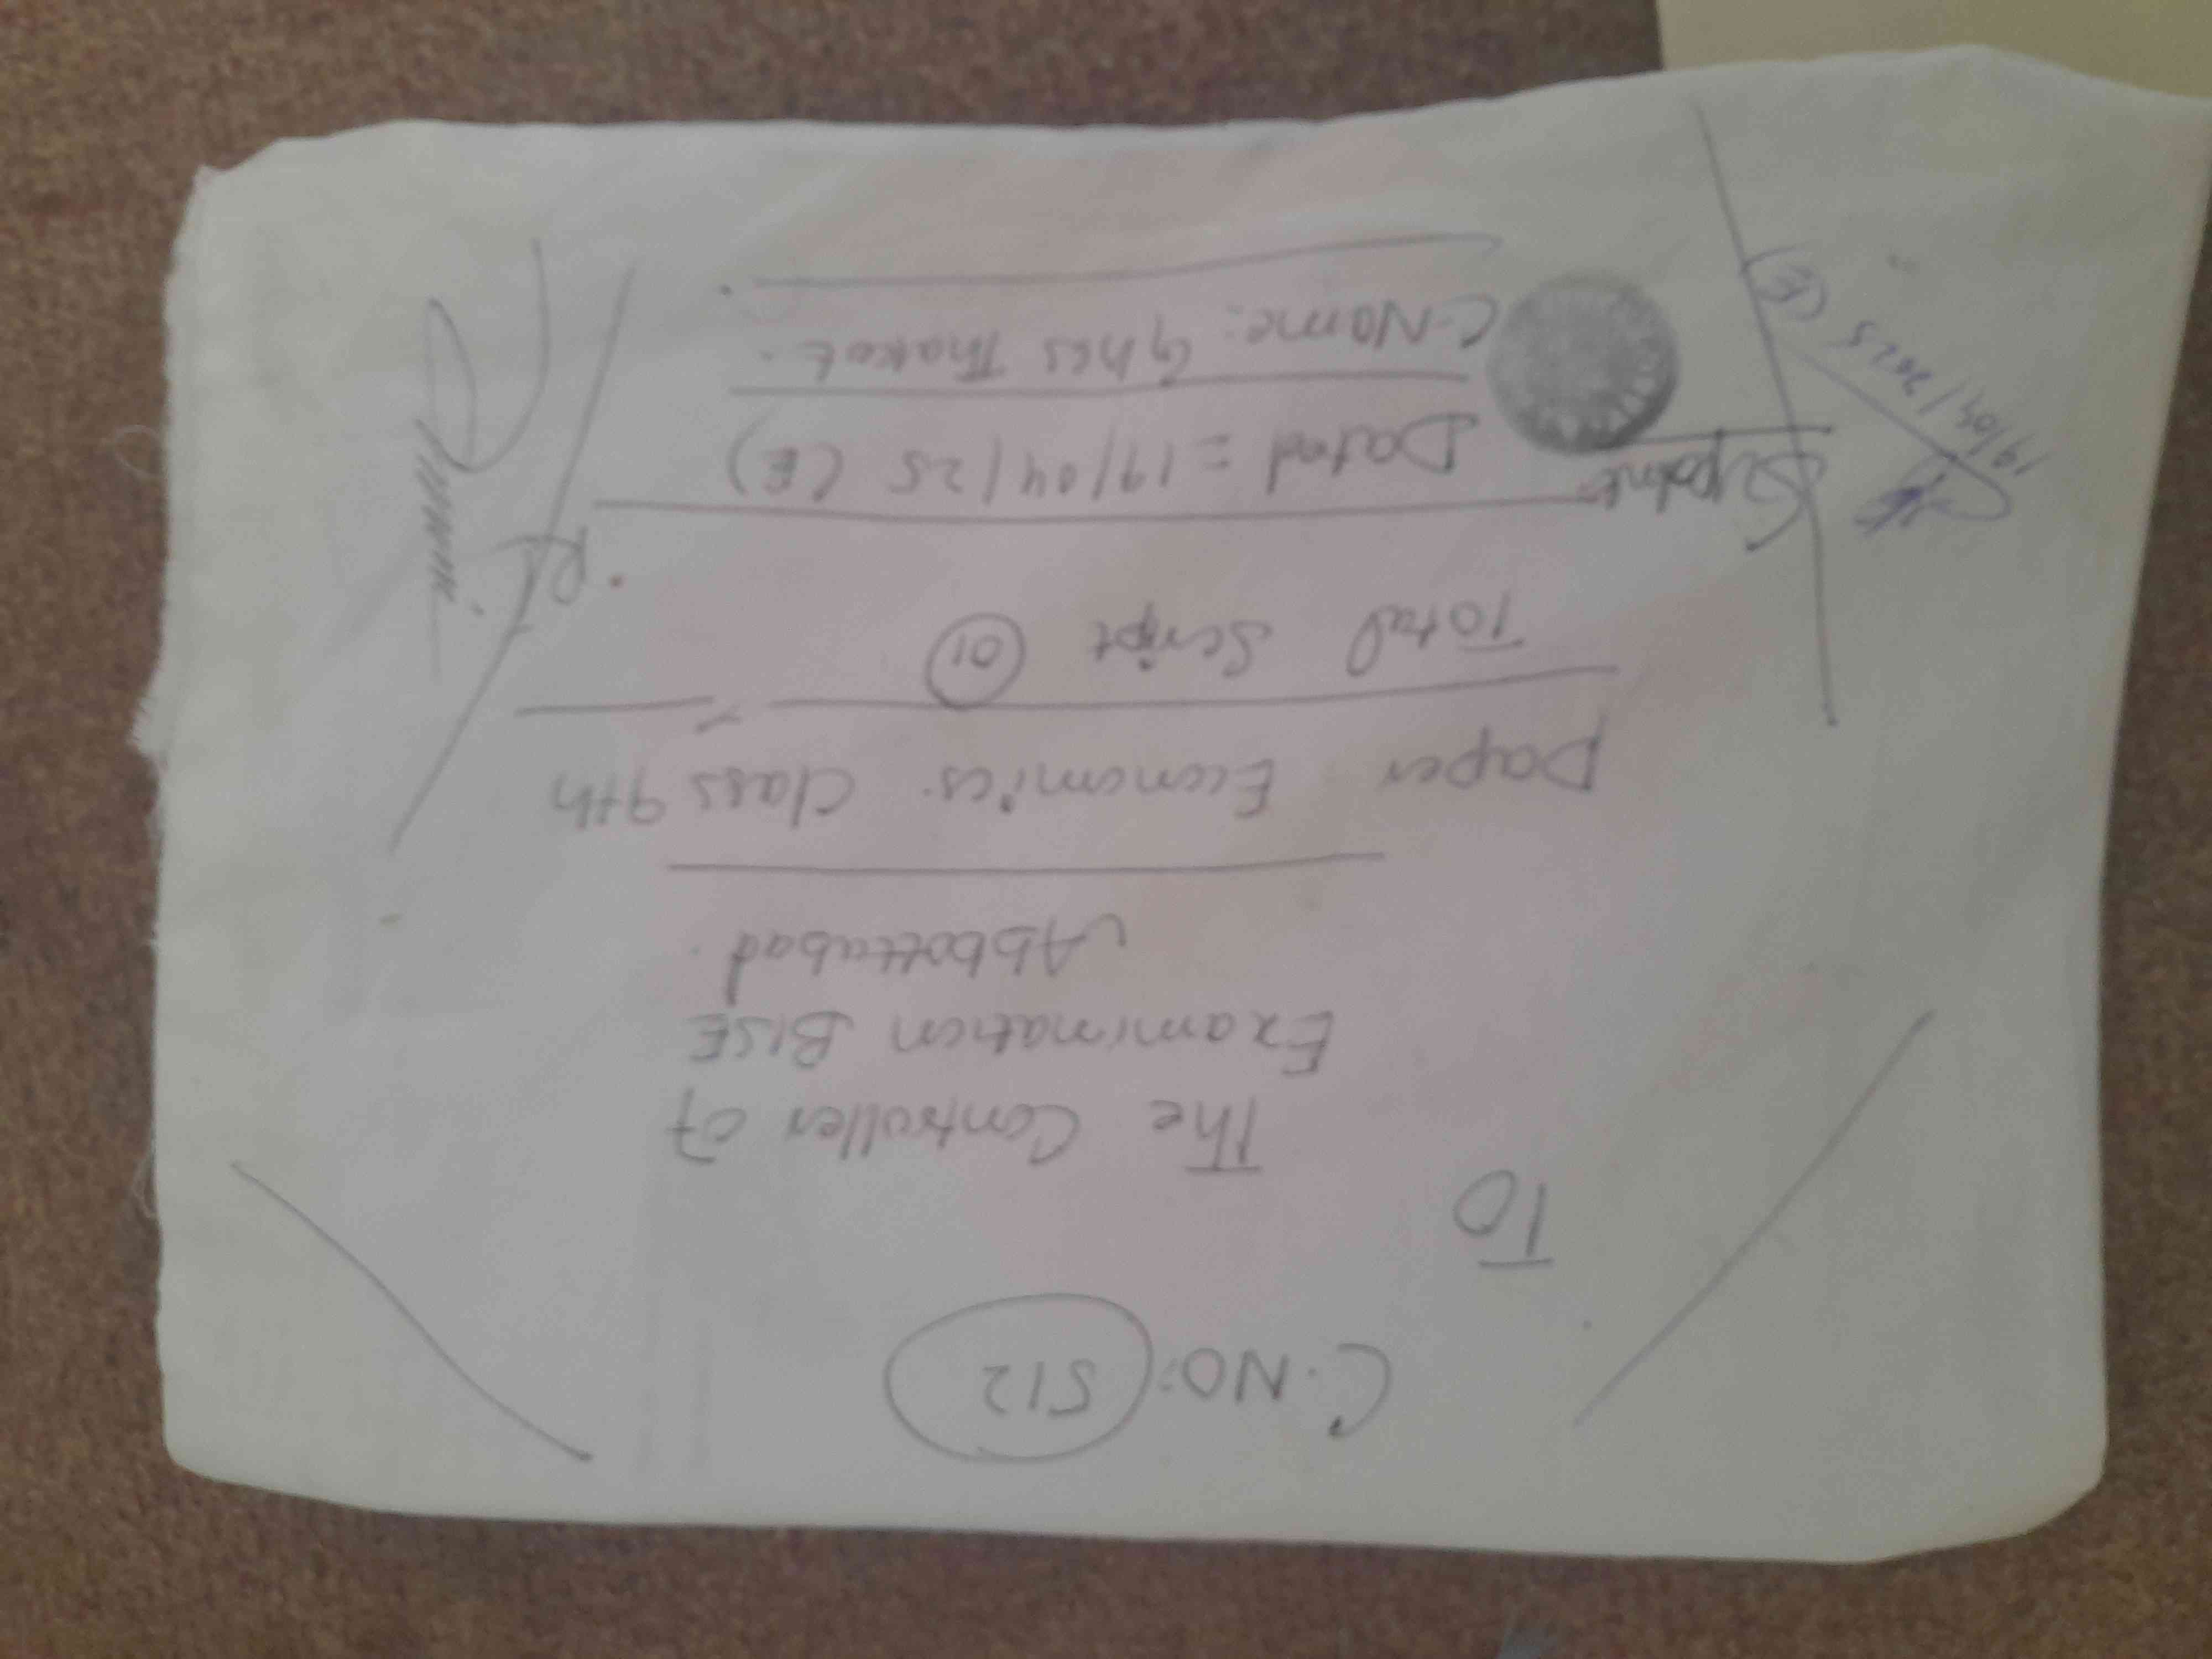 C.NO: 512
TO
The Controller of
Examination BISE
Abbottabad.
Paper Economics Class 9th
Total Script 01
R.I
Dated = 19/04/25 (E)
Supdnt
C.Name: Ghss Thakot.
19/04/2025 (E)